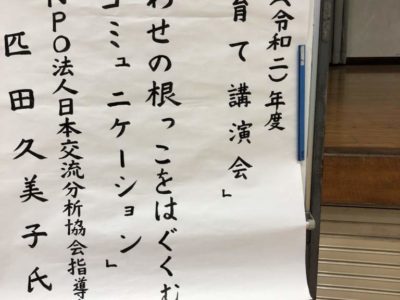 (令和二)年度
育て講演会」
わせの根っこをはぐくむ
コミュニケーション」
NPO法人日本交流分析協会指導
匹田久美子氏